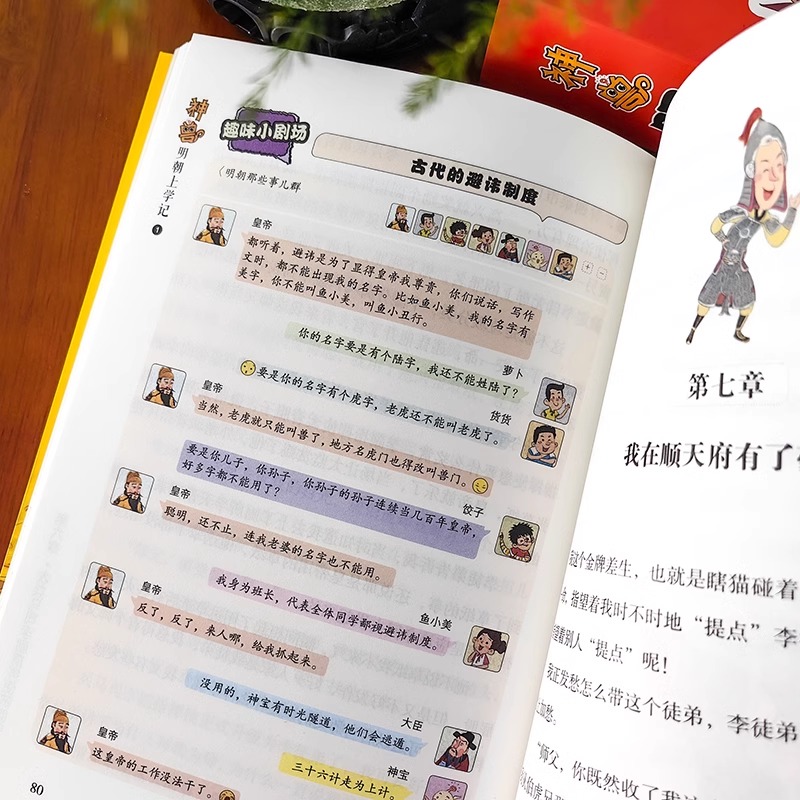 神兽
明朝上学记
1
趣味小剧场
古代的避讳制度
〈明朝那些事儿群
皇帝
都听着，避讳是为了显得皇帝我尊贵，你们说话，写作
文时，都不能出现我的名字。比如鱼小美，我的名字有
美字，你不能叫鱼小美，叫鱼小丑行。
萝卜
你的名字要是有个陆字，我还不能姓陆了？
货货
要是你的名字有个虎字，老虎还不能叫老虎了。
皇帝
当然，老虎就只能叫兽了，地方名虎门也得改叫兽门。
饺子
要是你儿子，你孙子，你孙子的孙子连续当几百年皇帝，
好多字都不能用了？
皇帝
聪明，还不止，连我老婆的名字也不能用。
鱼小美
我身为班长，代表全体同学鄙视避讳制度。
皇帝
反了，反了，来人哪，给我抓起来。
大臣
没用的，神宝有时光隧道，他们会逃遁。
神宝
三十六计走为上计。
皇帝
这皇帝的工作没法干了。
80
神兽
第七章
我在顺天府有了
这个金牌差生，也就是瞎猫碰着
指望着我时不时地“提点”李
望着别人“提点”呢！
我正发愁怎么带这个徒弟，李徒弟
“师父，你既然收了我